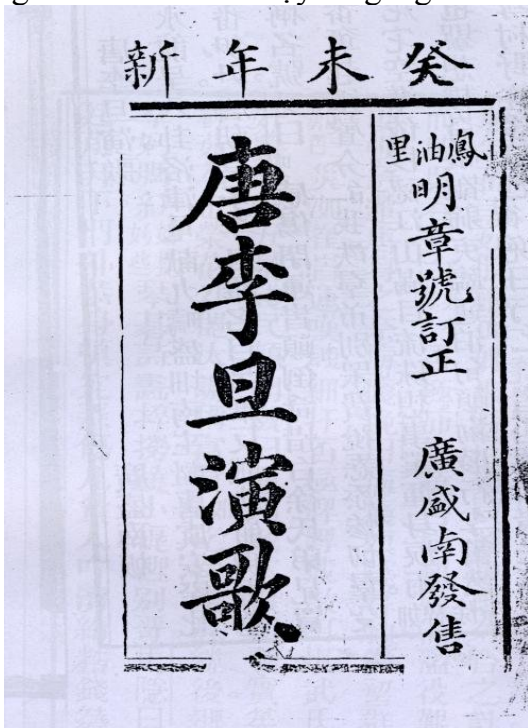 癸未年新
鳳油里
明章號訂正 廣盛南發售
唐李旦演歌